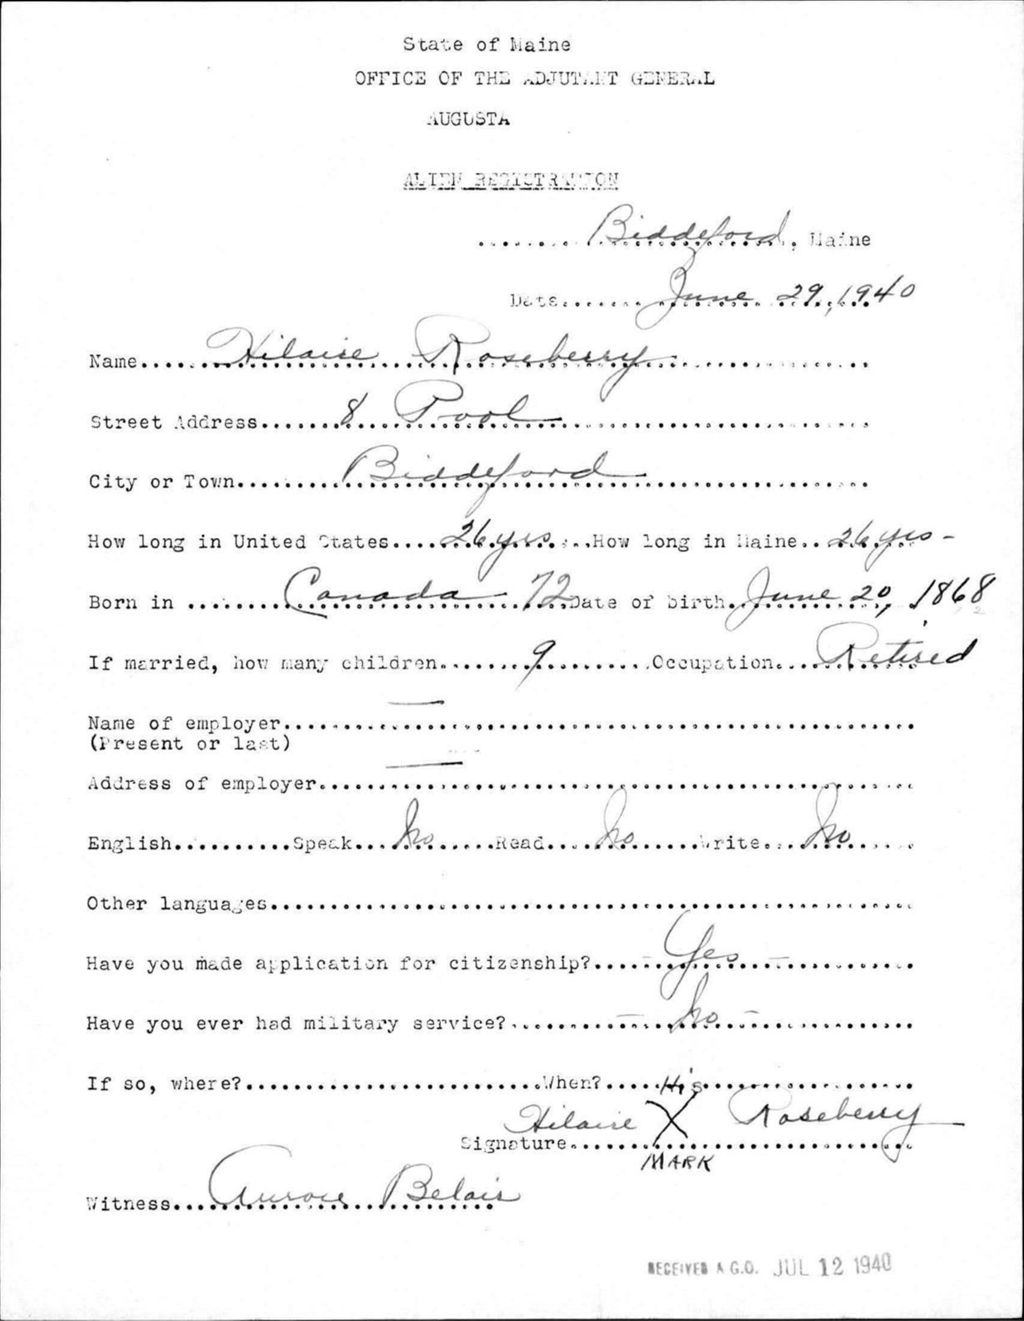 State of Maine
OFFICE OF THE ADJUTANT GENERAL
AUGUSTA
ALIEN REGISTRATION
Biddeford, Maine
Date June 29, 1940
Name Hilaire Roseberry
Street Address 8 Pool
City or Town Biddeford
How long in United States 26 yrs. How long in Maine 26 yrs -
Born in Canada 72 Date of birth June 20, 1868
If married, how many children 9 Occupation Retired
Name of employer —
(Present or last)
Address of employer —
English Speak No Read No Write No
Other languages
Have you made application for citizenship? - Yes -
Have you ever had military service? - No -
If so, where? When?
His
Hilaire X Roseberry
Signature
MARK
Witness Aurore Belair
RECEIVED A.G.O. JUL 12 1940